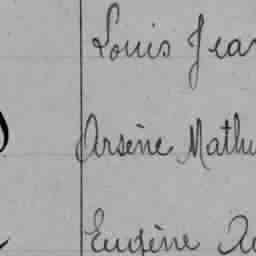 Louis Jea
Arsène Mathu
Eugène